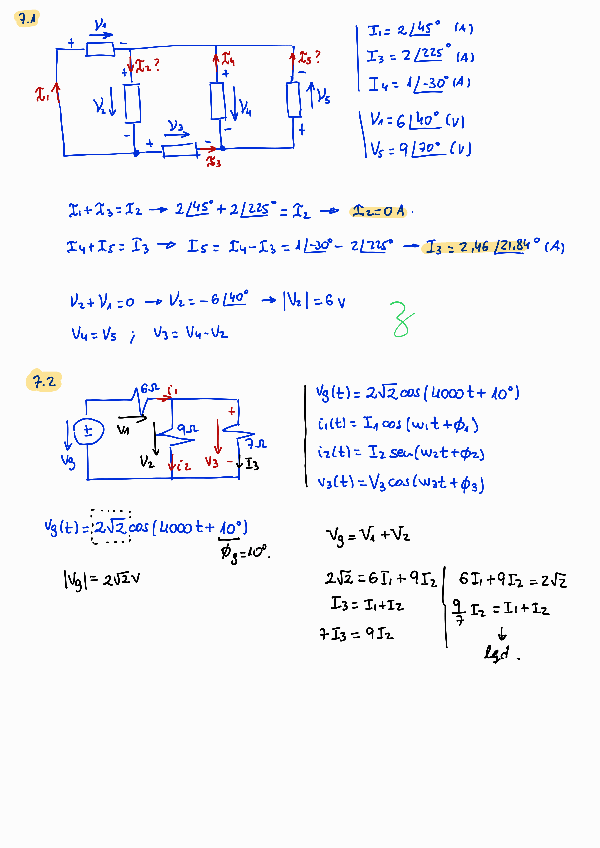 7.1
V1
+ -
I1
I2?
I4
I5?
+ + -
V2 V4 V5
- - +
V3
+ -
I3
I1 = 2∠45° (A)
I3 = 2∠225° (A)
I4 = 1∠-30° (A)
V1 = 6∠40° (V)
V5 = 9∠70° (V)
I1 + I3 = I2 → 2∠45° + 2∠225° = I2 → I2 = 0 A.
I4 + I5 = I3 ⇒ I5 = I4 - I3 = 1∠-30° - 2∠225° → I3 = 2,46∠21,84° (A)
V2 + V1 = 0 → V2 = -6∠40° → |V2| = 6 V
V4 = V5 ; V3 = V4 - V2
7.2
6Ω
i1
+
±
Vg
V1
9Ω
V2
i2
V3
-
7Ω
I3
vg(t) = 2√2 cos(4000t + 10°)
i1(t) = I1 cos(w1t + ϕ1)
i2(t) = I2 sen(w2t + ϕ2)
v3(t) = V3 cos(w3t + ϕ3)
vg(t) = 2√2 cos(4000t + 10°)
ϕg = 10°.
|Vg| = 2√2 V
Vg = V1 + V2
2√2 = 6I1 + 9I2
I3 = I1 + I2
7I3 = 9I2
6I1 + 9I2 = 2√2
9/7 I2 = I1 + I2
↓